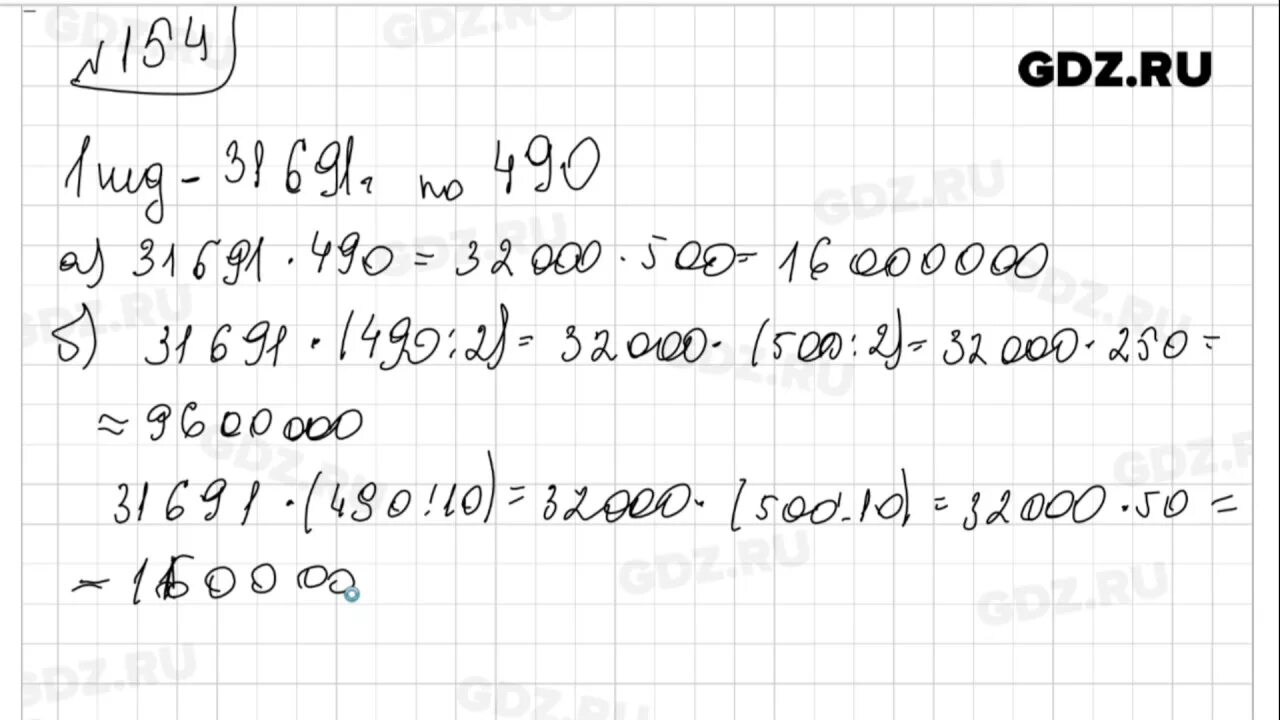 №154
GDZ.RU
1 изд - 31 691г по 490
а) 31 691 · 490 = 32 000 · 500 = 16 000 000
б) 31 691 · (490:2) = 32 000 · (500:2) = 32 000 · 250 =
≈ 9600 000
31 691 · (490:10) = 32000 · (500:10) = 32 000 · 50 =
= 1600 000